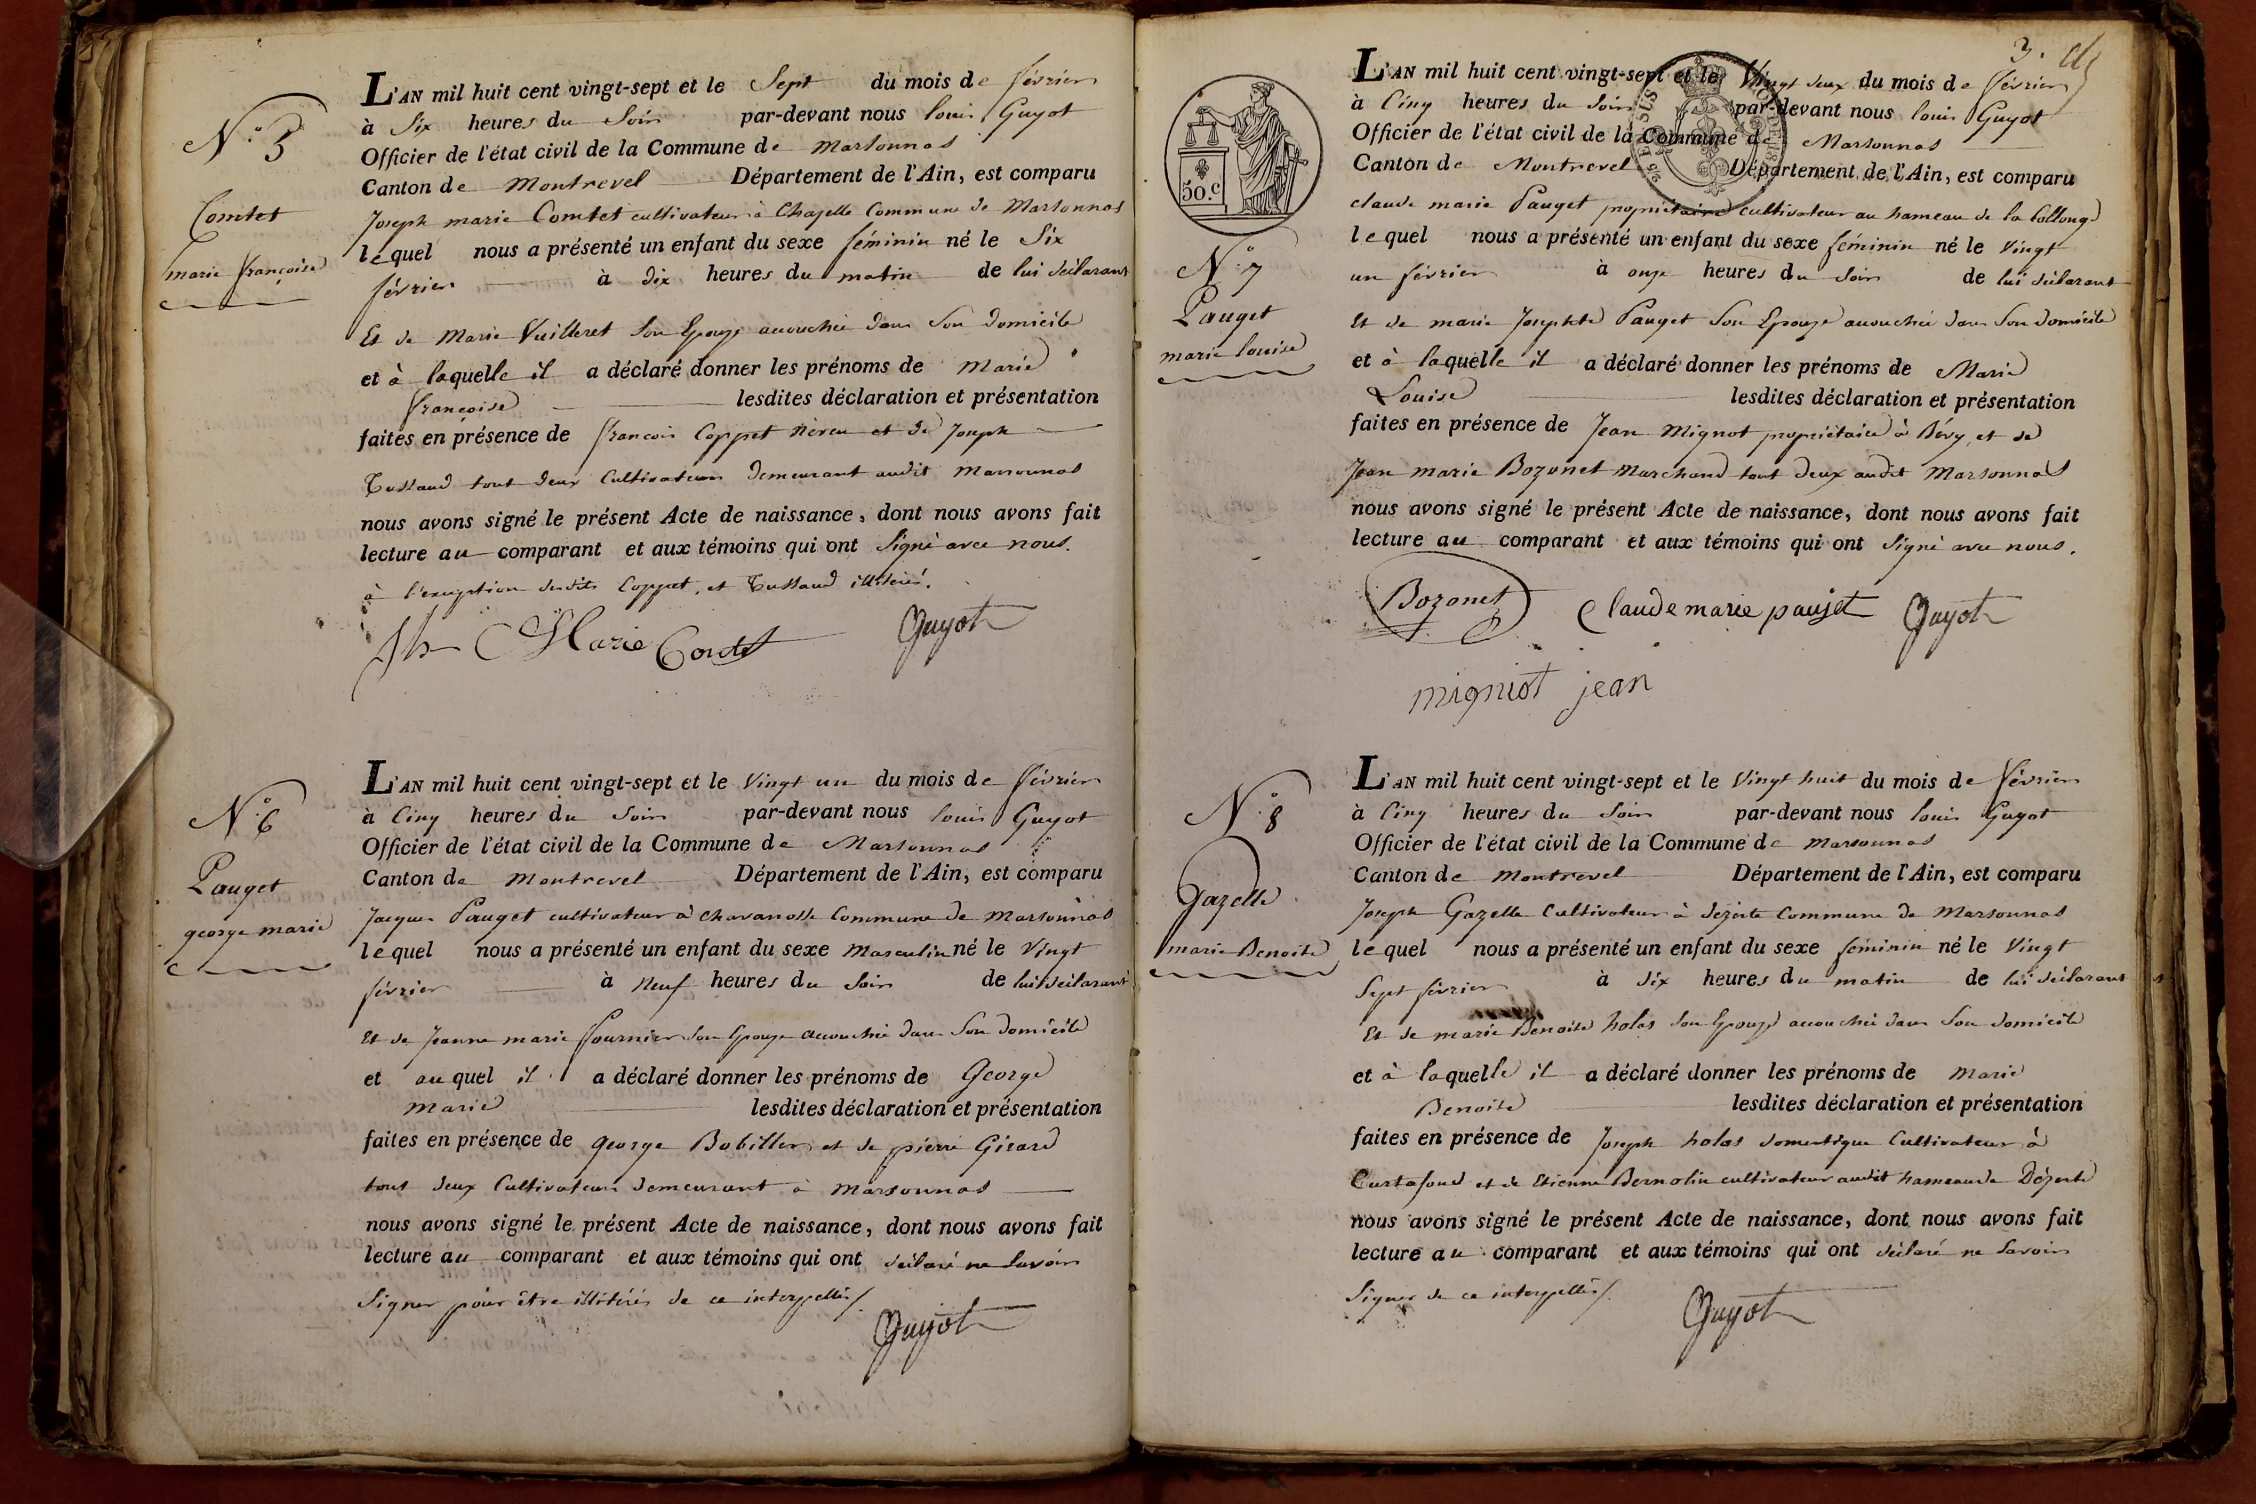 N.° 5
Comtet
marie françoise
L'AN mil huit cent vingt-sept et le Sept du mois de février
à Six heures du Soir par-devant nous louis Guyot
Officier de l'état civil de la Commune de Marsonnas
Canton de Montrevel Département de l'Ain, est comparu
Joseph marie Comtet cultivateur à Chapelle Commune de Marsonnas
lequel nous a présenté un enfant du sexe féminin né le Six
février à dix heures du matin de lui déclarant
Et de Marie Vuilleret Son Epouse accouchée dans Son domicile
et à laquelle il a déclaré donner les prénoms de Marie
françoise lesdites déclaration et présentation
faites en présence de françois Coppet et de Joseph
Tussaud tout deux Cultivateurs demeurant audit Marsonnas
nous avons signé le présent Acte de naissance, dont nous avons fait
lecture au comparant et aux témoins qui ont Signé avec nous.
à l'exception desdits Coppet, et Tussaud
Jh Marie Comtet Guyot
N.° 6
Pauget
george marie
L'AN mil huit cent vingt-sept et le Vingt un du mois de février
à Cinq heures du Soir par-devant nous louis Guyot
Officier de l'état civil de la Commune de Marsonnas
Canton de Montrevel Département de l'Ain, est comparu
Jacques Pauget cultivateur à Chavanosse Commune de Marsonnas
lequel nous a présenté un enfant du sexe Masculin né le Vingt
février à Neuf heures du Soir de lui déclarant
Et de Jeanne marie fournier Son Epouse accouchée dans Son domicile
et au quel il a déclaré donner les prénoms de George
Marie lesdites déclaration et présentation
faites en présence de george Bobillon et de pierre Girard
tout deux Cultivateurs demeurant à Marsonnas
nous avons signé le présent Acte de naissance, dont nous avons fait
lecture au comparant et aux témoins qui ont déclaré ne Savoir
Signer pour être illitérés de ce interpellés/.
Guyot
3.
50.c
N.° 7
Pauget
marie louise
L'AN mil huit cent vingt-sept et le Vingt deux du mois de février
à Cinq heures du Soir par-devant nous louis Guyot
Officier de l'état civil de la Commune de Marsonnas
Canton de Montrevel Département de l'Ain, est comparu
claude marie Pauget propriétaire cultivateur au hameau de la Collonge
lequel nous a présenté un enfant du sexe féminin né le Vingt
un février à onze heures du Soir de lui déclarant
Et de marie Josephte Pauget Son Epouse accouchée dans Son domicile
et à laquelle il a déclaré donner les prénoms de Marie
Louise lesdites déclaration et présentation
faites en présence de Jean Mignot propriétaire à Bévy, et de
Jean marie Bozonet Marchand tout deux audit Marsonnas
nous avons signé le présent Acte de naissance, dont nous avons fait
lecture au comparant et aux témoins qui ont Signé avec nous.
Bozonet Claude marie paujet Guyot
migniot jean
N.° 8
Gazelle
marie Benoite
L'AN mil huit cent vingt-sept et le Vingt huit du mois de février
à Cinq heures du Soir par-devant nous louis Guyot
Officier de l'état civil de la Commune de Marsonnas
Canton de Montrevel Département de l'Ain, est comparu
Joseph Gazelle Cultivateur à dézerte Commune de Marsonnas
lequel nous a présenté un enfant du sexe féminin né le Vingt
Sept février à Six heures du matin de lui déclarant
Et de marie Benoite holas Son Epouse accouchée dans Son domicile
et à laquelle il a déclaré donner les prénoms de Marie
Benoite lesdites déclaration et présentation
faites en présence de Joseph holas domestique Cultivateur à
Curtafond et de Etienne Bernolin cultivateur audit hameau de Dézerte
nous avons signé le présent Acte de naissance, dont nous avons fait
lecture au comparant et aux témoins qui ont déclaré ne Savoir
Signer de ce interpellés/.
Guyot